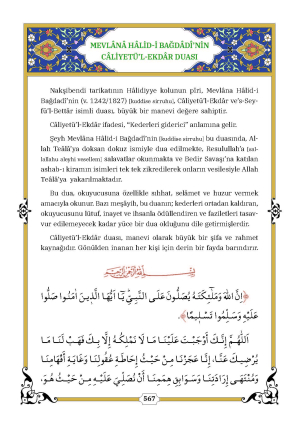 MEVLÂNÂ HÂLİD-İ BAĞDÂDÎ'NİN
CÂLİYETÜ'L-EKDÂR DUASI
Nakşibendî tarikatının Hâlidiyye kolunun pîri, Mevlâna Hâlid-i
Bağdadî'nin (v. 1242/1827) [kuddise sirruhu], Câliyetü'l-Ekdâr ve's-Sey-
fü'l-Bettâr isimli duası, büyük bir manevi değere sahiptir.
Câliyetü'l-Ekdâr ifadesi, "Kederleri giderici" anlamına gelir.
Şeyh Mevlâna Hâlid-i Bağdadî'nin [kuddise sirruhu] bu duasında, Al-
lah Teâlâ'ya doksan dokuz ismiyle dua edilmekte, Resulullah'a [sal-
lallahu aleyhi vesellem] salavatlar okunmakta ve Bedir Savaşı'na katılan
ashab-ı kiramın isimleri tek tek zikredilerek onların vesilesiyle Allah
Teâlâ'ya yakarılmaktadır.
Bu dua, okuyucusuna özellikle sıhhat, selâmet ve huzur vermek
amacıyla okunur. Bazı meşâyih, bu duanın; kederleri ortadan kaldıran,
okuyucusunu lütuf, inayet ve ihsanla ödüllendiren ve faziletleri tasav-
vur edilemeyecek kadar yüce bir dua olduğunu dile getirmişlerdir.
Câliyetü'l-Ekdâr duası, manevi olarak büyük bir şifa ve rahmet
kaynağıdır. Gönülden inanan her kişi için derin bir fayda barındırır.
بِسْمِ اللهِ الرَّحْمٰنِ الرَّحِيمِ
﴿اِنَّ اللهَ وَمَلٰٓئِكَتَهُ يُصَلُّونَ عَلَى النَّبِيِّ يَٓا اَيُّهَا الَّذِينَ اٰمَنُوا صَلُّوا
عَلَيْهِ وَسَلِّمُوا تَسْلِيمًا﴾
اَللّٰهُمَّ اِنَّكَ اَوْجَبْتَ عَلَيْنَا مَا لَا نَمْلِكُهُ اِلَّا بِكَ فَهَبْ لَنَا مَا
يُرْضِيكَ عَنَّا، اِنَّا عَجَزْنَا مِنْ حَيْثُ اِحَاطَةِ عُقُولِنَا وَغَايَةِ اَفْهَامِنَا
وَمُنْتَهَى اِرَادَتِنَا وَسَوَابِقِ هِمَمِنَا اَنْ نُصَلِّيَ عَلَيْهِ مِنْ حَيْثُ هُوَ،
567